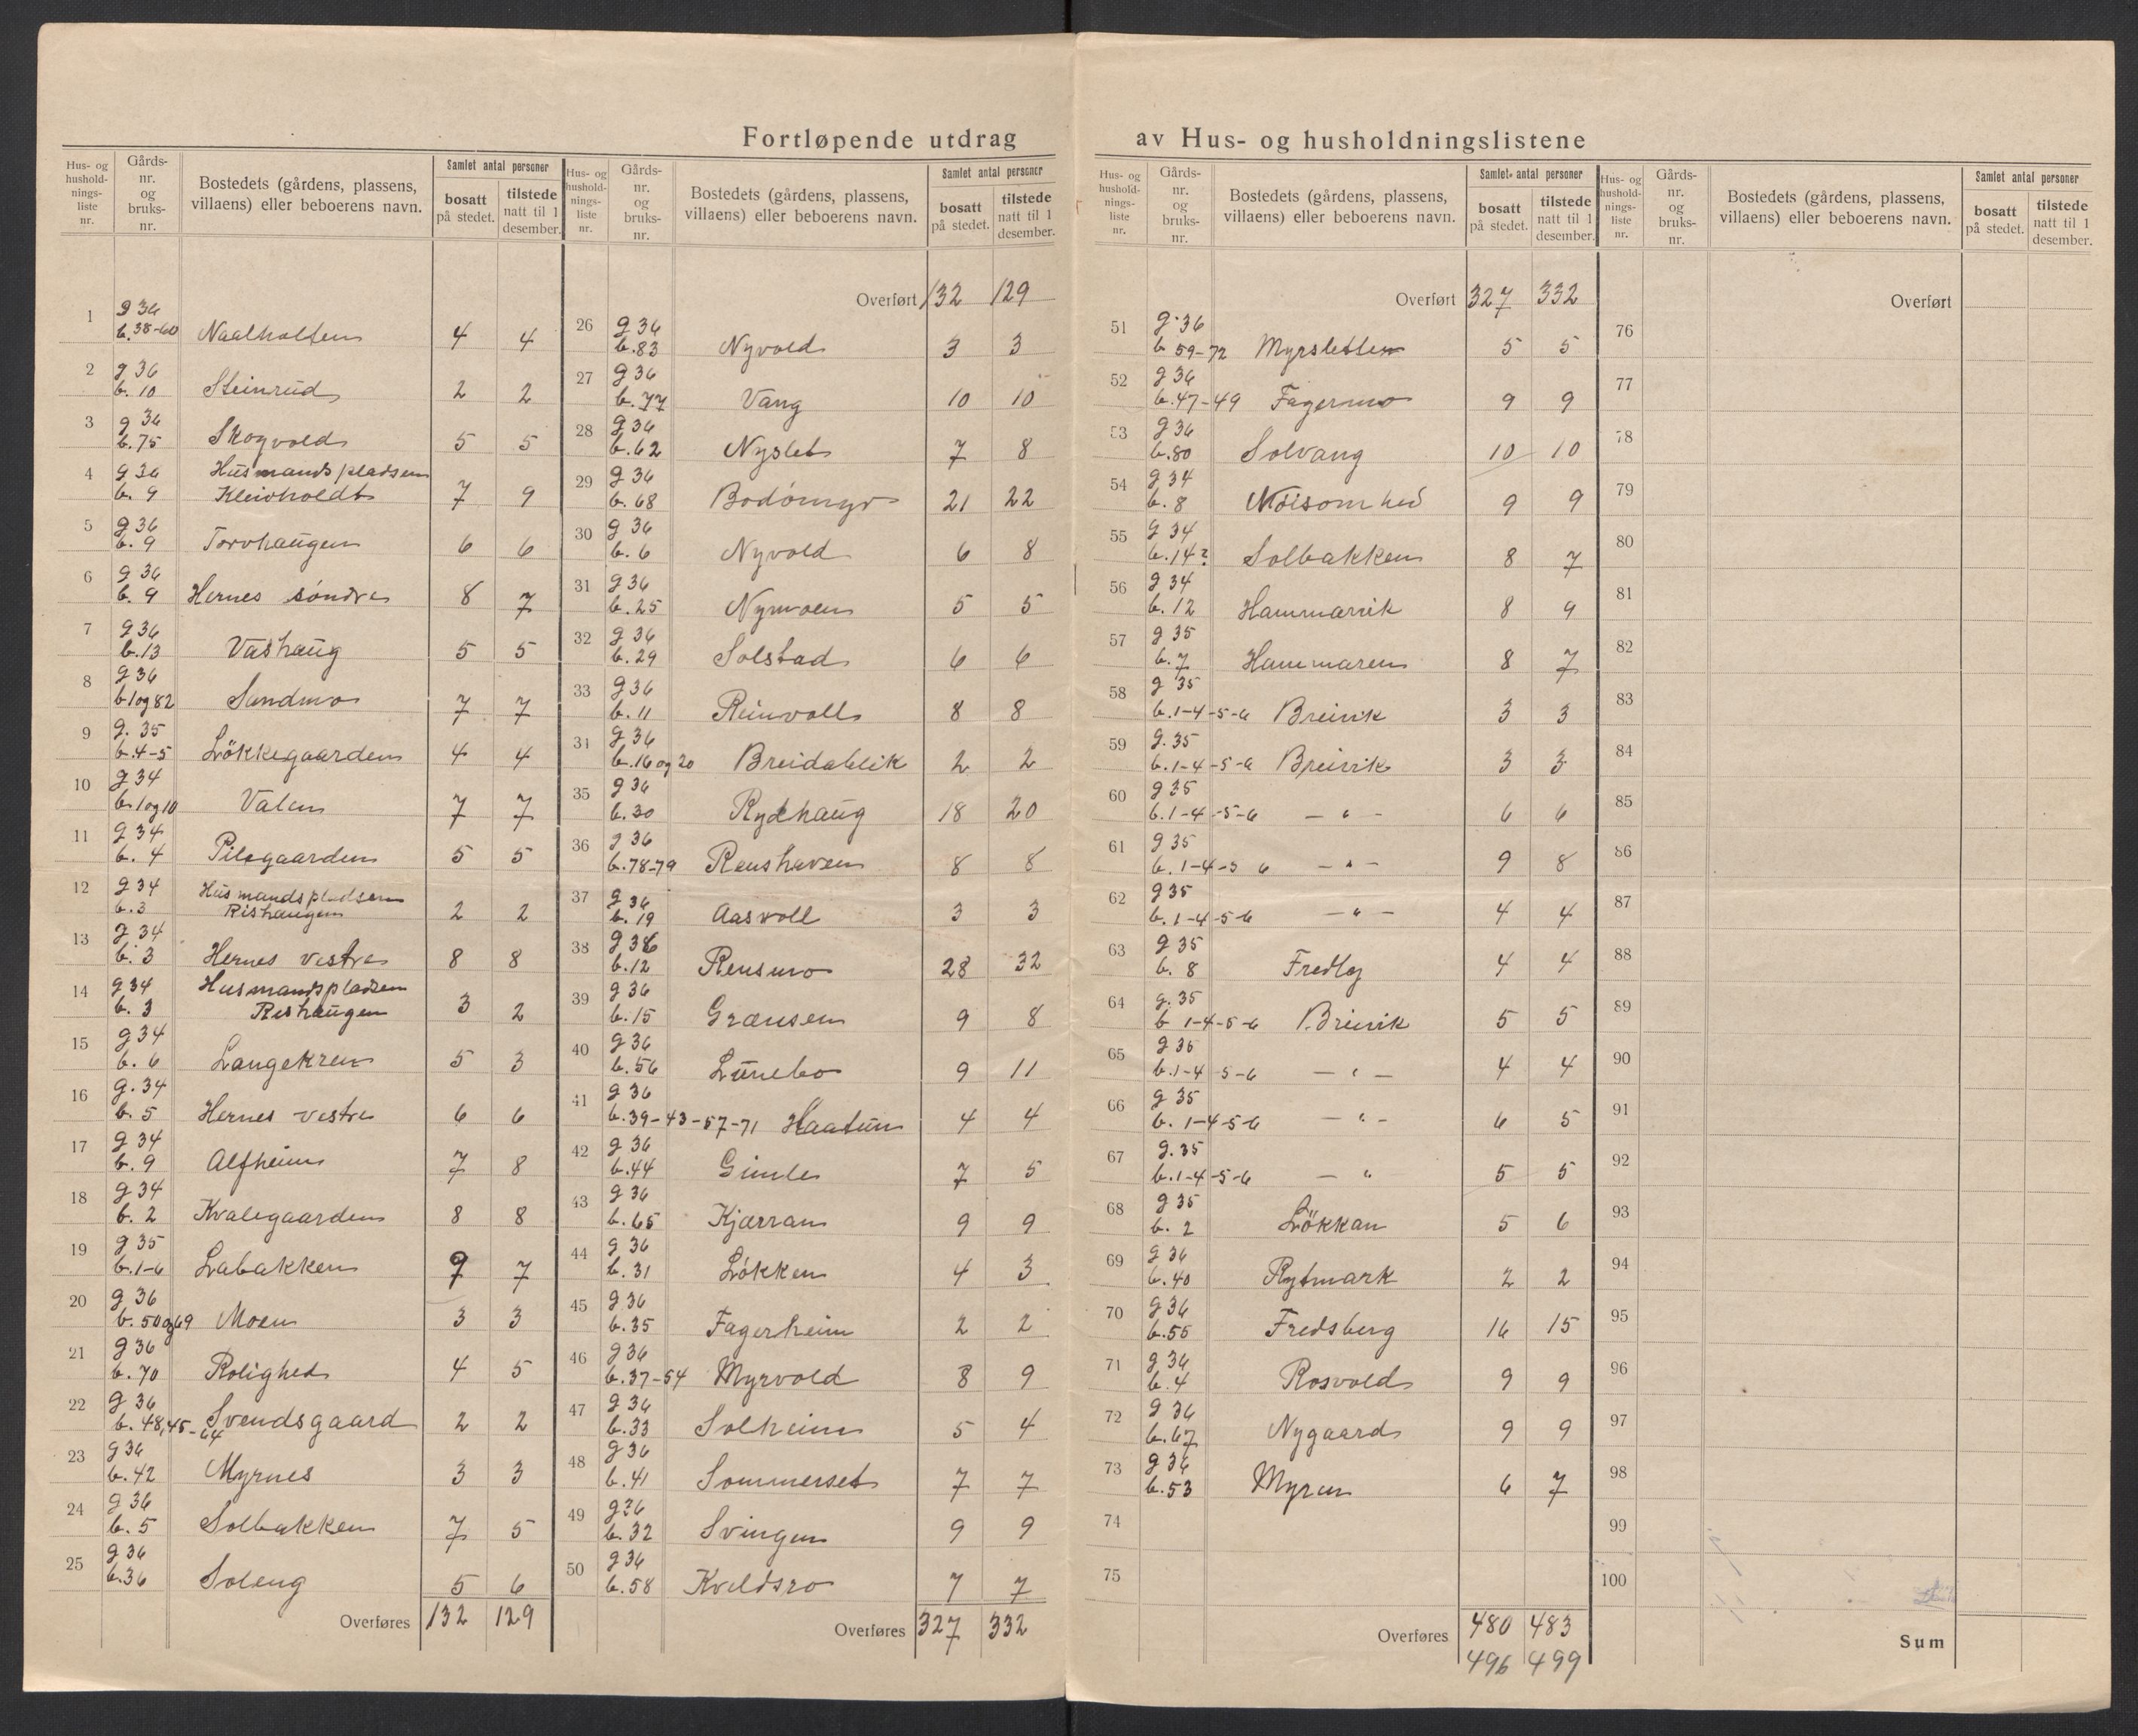 Fortløpende utdrag av Hus- og husholdningslistene
Hus- og husholdnings-liste nr. Gårds-nr. og bruks-nr. Bostedets (gårdens, plassens, villaens) eller beboerens navn. Samlet antal personer bosatt på stedet. tilstede natt til 1 desember.
1 g 36 b. 38-60 Naalholten 4 4
2 g 36 b. 10 Steinrud 2 2
3 g 36 b. 75 Skogvold 5 5
4 g 36 b. 9 Husmandspladsen Kleivholdt 7 9
5 g 36 b. 9 Torvhaugen 6 6
6 g 36 b. 9 Hernes söndre 8 7
7 g 36 b. 13 Vashaug 5 5
8 g 36 b 1 og 82 Sandmo 7 7
9 g. 35 b. 4-5 Lökkegaarden 4 4
10 g 34 b. 1 og 10 Valen 7 7
11 g 34 b. 4 Pilegaarden 5 5
12 g 34 b. 3 Husmandspladsen Rishaugen 2 2
13 g 34 b. 3 Hernes vestre 8 8
14 g 34 b. 3 Husmandspladsen Rishaugen 3 2
15 g 34 b. 6 Langekren 5 3
16 g. 34 b. 5 Hernes vestre 6 6
17 g 34 b. 9 Alfheim 7 8
18 g 34 b. 2 Kvalegaarden 8 8
19 g 35 b. 1-6 Labakken 9 7
20 g 36 b. 50 og 69 Moen 3 3
21 g 36 b. 70 Rolighed 4 5
22 g 36 b. 48, 45-64 Svendsgaard 2 2
23 g 36 b. 42 Myrnes 3 3
24 g 36 b. 5 Solbakken 7 5
25 g 36 b. 36 Soleng 5 6
Overføres 132 129
Hus- og husholdnings-liste nr. Gårds-nr. og bruks-nr. Bostedets (gårdens, plassens, villaens) eller beboerens navn. Samlet antal personer bosatt på stedet. tilstede natt til 1 desember.
Overført 132 129
26 g 36 b. 83 Nyvold 3 3
27 g 36 b. 77 Vang 10 10
28 g 36 b. 62 Nyslet 7 8
29 g 36 b. 68 Bodömyr 21 22
30 g 36 b. 6 Nyvold 6 8
31 g 36 b. 25 Nymoen 5 5
32 g 36 b. 29 Solstad 6 6
33 g 36 b. 11 Reinvoll 8 8
34 g 36 b. 16 og 20 Breidablik 2 2
35 g 36 b. 30 Rydhaug 18 20
36 g 36 b. 78-79 Renshaven 8 8
37 g 36 b. 19 Aasvoll 3 3
38 g 36 b. 12 Rensmo 28 32
39 g 36 b. 15 Grænsen 9 8
40 g 36 b. 56 Lunebo 9 11
41 g 36 b. 39-43-57-71 Haatun 4 4
42 g 36 b. 44 Gimle 7 5
43 g 36 b. 65 Kjærran 9 9
44 g 36 b. 31 Lökken 4 3
45 g 36 b. 35 Fagerheim 2 2
46 g 36 b. 37-54 Myrvold 8 9
47 g 36 b. 33 Solheim 5 4
48 g 36 b. 41 Sommerset 7 7
49 g 36 b. 32 Svingen 9 9
50 g 36 b. 58 Kveldsro 7 7
Overføres 327 332
Hus- og husholdnings-liste nr. Gårds-nr. og bruks-nr. Bostedets (gårdens, plassens, villaens) eller beboerens navn. Samlet antal personer bosatt på stedet. tilstede natt til 1 desember.
Overført 327 332
51 g 36 b 59-72 Myrsletten 5 5
52 g 36 b. 47-49 Fagermo 9 9
53 g 36 b. 80 Solvang 10 10
54 g 34 b. 8 Nöisomhed 9 9
55 g 34 b. 14? Solbakken 8 7
56 g 34 b. 12 Hammarvik 8 9
57 g 35 b. 7 Hammaren 8 7
58 g 35 b. 1-4-5-6 Breivik 3 3
59 g. 35 b. 1-4-5-6 Breivik 3 3
60 g 35 b. 1-4-5-6 — " — 6 6
61 g 35 b. 1-4-5 6 — " — 9 8
62 g 35 b. 1-4-5-6 — " — 4 4
63 g 35 b. 8 Fredly 4 4
64 g. 35 b 1-4-5-6 Breivik 5 5
65 g 35 b. 1-4-5-6 — " — 4 4
66 g 35 b. 1-4-5-6 — " — 6 5
67 g. 35 b. 1-4-5-6 — " 5 5
68 g 35 b. 2 Lökkan 5 6
69 g 36 b. 40 Rytmark 2 2
70 g 36 b. 55 Fredsberg 16 15
71 g 36 b. 4 Rosvold 9 9
72 g 36 b. 67 Nygaard 9 9
73 g 36 b. 53 Myran 6 7
74
75
Overføres 480 483
496 499
Hus- og husholdnings-liste nr. Gårds-nr. og bruks-nr. Bostedets (gårdens, plassens, villaens) eller beboerens navn. Samlet antal personer bosatt på stedet. tilstede natt til 1 desember.
Overført
76
77
78
79
80
81
82
83
84
85
86
87
88
89
90
91
92
93
94
95
96
97
98
99
100
Sum